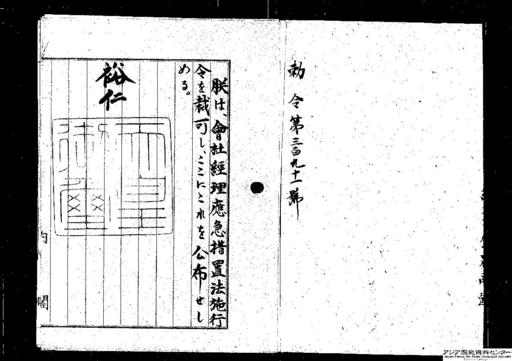 勅令第三百九十一號
朕は、會社經理應急措置法施行
令を裁可し、ここにこれを公布せし
める。
裕仁
内閣
アジア歴史資料センター